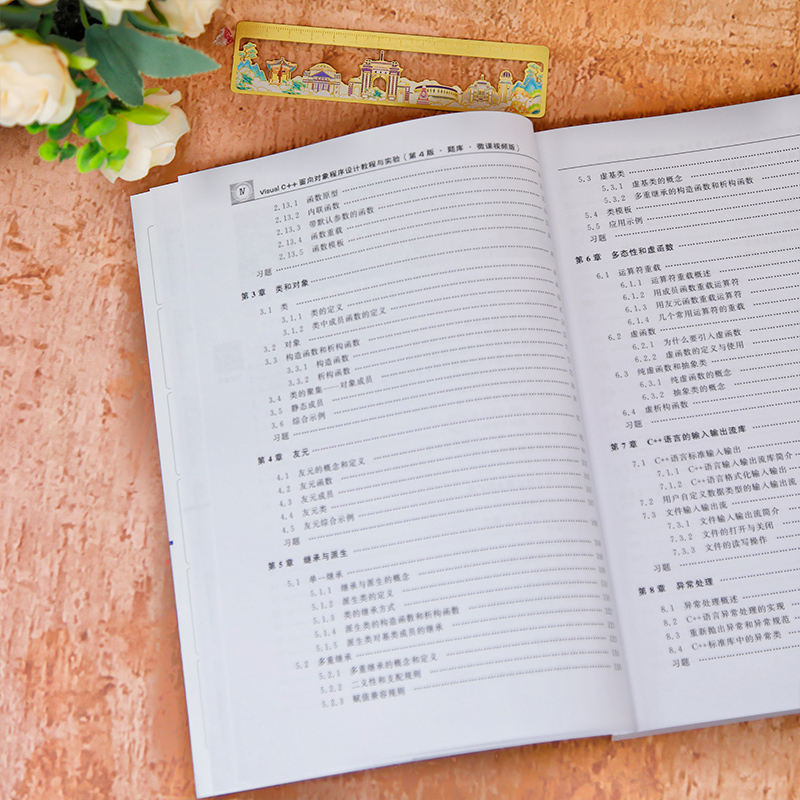 Ⅳ Visual C++ 面向对象程序设计教程与实验（第4版·题库·微课视频版）
2.13.1 函数原型
2.13.2 内联函数
2.13.3 带默认参数的函数
2.13.4 函数重载
2.13.5 函数模板
习题
第3章 类和对象
3.1 类
3.1.1 类的定义
3.1.2 类中成员函数的定义
3.2 对象
3.3 构造函数和析构函数
3.3.1 构造函数
3.3.2 析构函数
3.4 类的聚集——对象成员
3.5 静态成员
3.6 综合示例
习题
第4章 友元
4.1 友元的概念和定义
4.2 友元函数
4.3 友元成员
4.4 友元类
4.5 友元综合示例
习题
第5章 继承与派生
5.1 单一继承
5.1.1 继承与派生的概念
5.1.2 派生类的定义
5.1.3 类的继承方式
5.1.4 派生类的构造函数和析构函数
5.1.5 派生类对基类成员的继承
5.2 多重继承
5.2.1 多重继承的概念和定义
5.2.2 二义性和支配规则
5.2.3 赋值兼容规则
5.3 虚基类
5.3.1 虚基类的概念
5.3.2 多重继承的构造函数和析构函数
5.4 类模板
5.5 应用示例
习题
第6章 多态性和虚函数
6.1 运算符重载
6.1.1 运算符重载概述
6.1.2 用成员函数重载运算符
6.1.3 用友元函数重载运算符
6.1.4 几个常用运算符的重载
6.2 虚函数
6.2.1 为什么要引入虚函数
6.2.2 虚函数的定义与使用
6.3 纯虚函数和抽象类
6.3.1 纯虚函数的概念
6.3.2 抽象类的概念
6.4 虚析构函数
习题
第7章 C++语言的输入输出流库
7.1 C++语言标准输入输出
7.1.1 C++语言输入输出流库简介
7.1.2 C++语言格式化输入输出
7.2 用户自定义数据类型的输入输出流
7.3 文件输入输出流
7.3.1 文件输入输出流简介
7.3.2 文件的打开与关闭
7.3.3 文件的读写操作
习题
第8章 异常处理
8.1 异常处理概述
8.2 C++语言异常处理的实现
8.3 重新抛出异常和异常规范
8.4 C++标准库中的异常类
习题